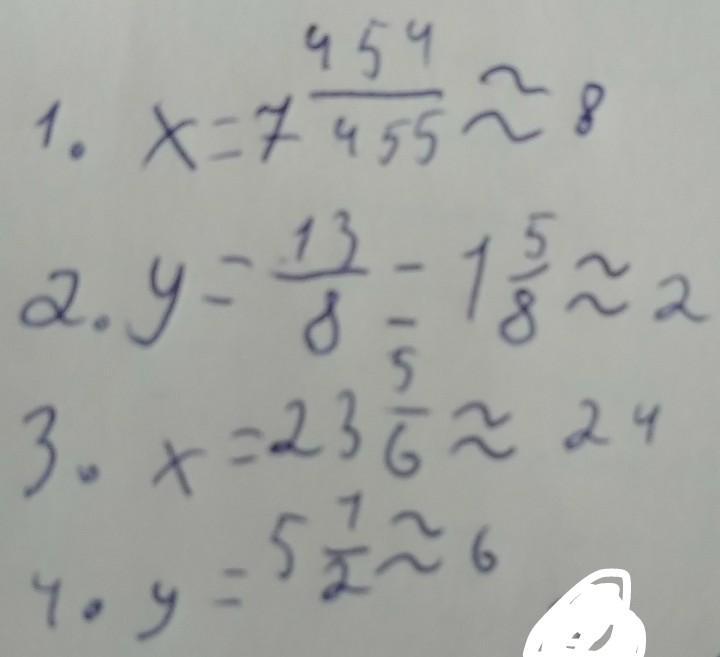 1. x = 7 454/455 ≈ 8
2. y = 13/8 = 1 5/8 ≈ 2
3. x = 23 5/6 ≈ 24
4. y = 5 1/2 ≈ 6